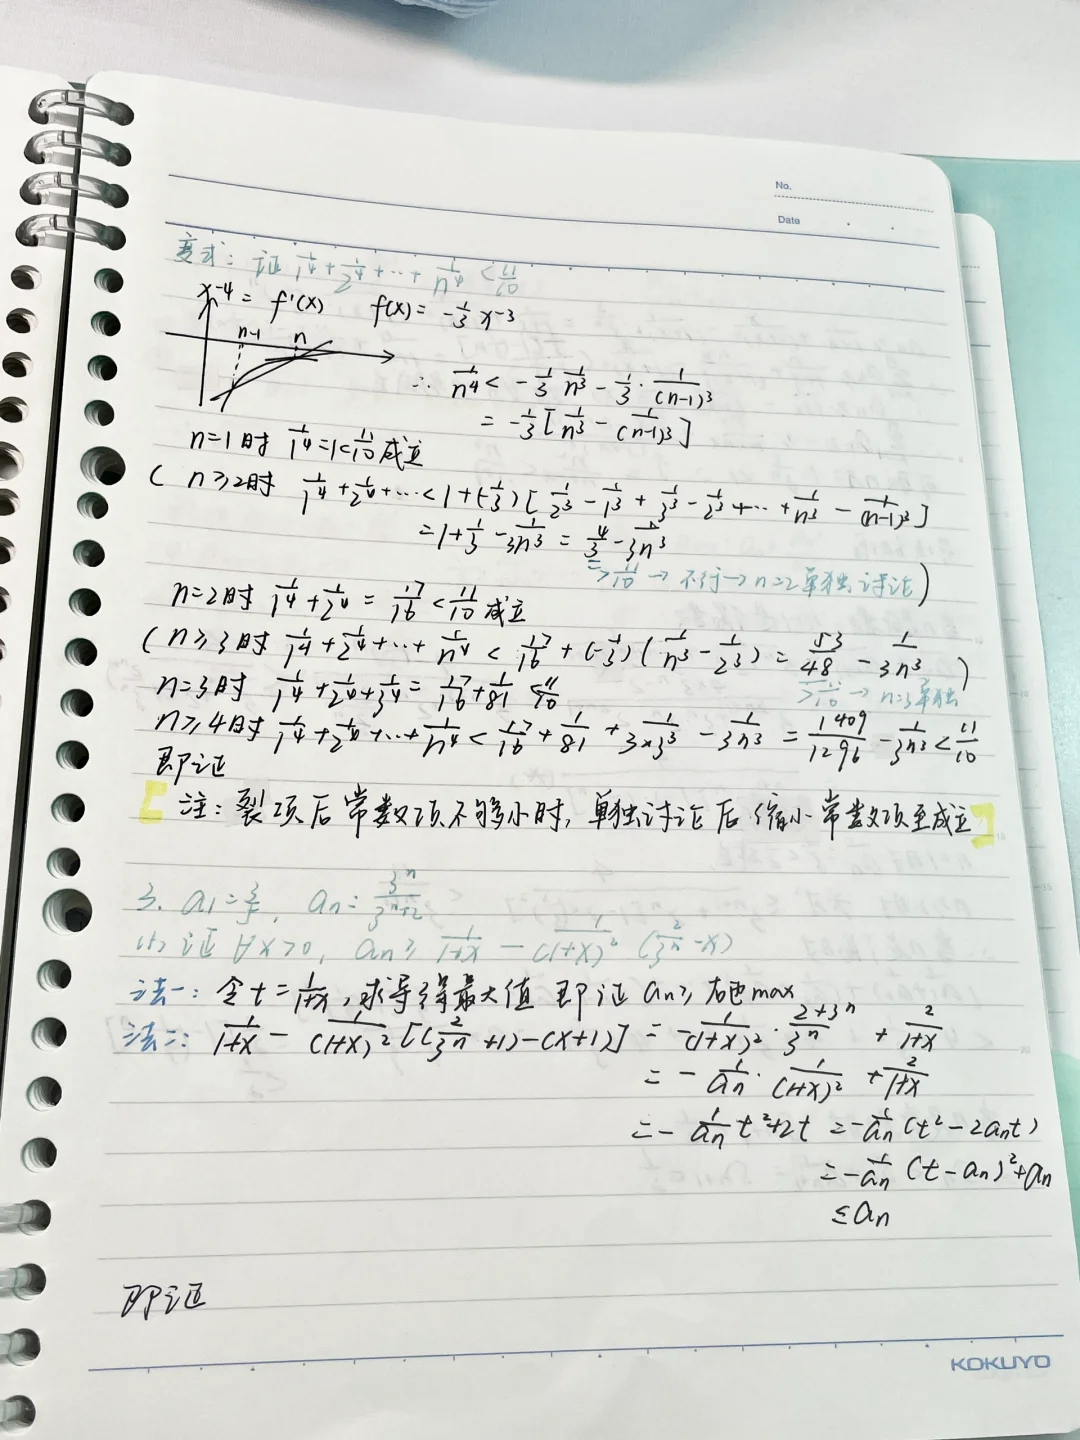 No.
Date
变式: 证 1/1⁴ + 1/2⁴ + ... + 1/n⁴ < 11/10
x⁻⁴ = f'(x) f(x) = -1/3 x⁻³
n-1 n
∴ 1/n⁴ < -1/3 1/n³ - 1/3 · 1/(n-1)³
= -1/3 [1/n³ - 1/(n-1)³]
n=1时 1/1⁴ = 1 < 11/10 成立
( n≥2时 1/1⁴ + 1/2⁴ + ... < 1 + (-1/3) [1/2³ - 1/1³ + 1/3³ - 1/2³ + ... + 1/n³ - 1/(n-1)³]
= 1 + 1/3 - 1/3n³ = 4/3 - 1/3n³
> 11/10 → 不行 → n=2单独讨论 )
n=2时 1/1⁴ + 1/2⁴ = 17/16 < 11/10 成立
( n≥3时 1/1⁴ + 1/2⁴ + ... + 1/n⁴ < 17/16 + (-1/3) (1/n³ - 1/2³) = 53/48 - 1/3n³ )
> 11/10 → n=3单独
n=3时 1/1⁴ + 1/2⁴ + 1/3⁴ = 17/16 + 1/81 < 11/10
n≥4时 1/1⁴ + 1/2⁴ + ... + 1/n⁴ < 17/16 + 1/81 + 1/3×3³ - 1/3n³ = 1409/1296 - 1/3n³ < 11/10
即证
[ 注: 裂项后常数项不够小时, 单独讨论后缩小常数项至成立 ]
3. a₁ = 3/5, aₙ = 3ⁿ/3ⁿ+2
(1) 证 ∀x>0, aₙ ≥ 1/1+x - 1/(1+x)² (2/3ⁿ - x)
法一: 令 t = 1/1+x, 求导得最大值 即证 aₙ ≥ 右边max
法二: 1/1+x - 1/(1+x)² [(2/3ⁿ + 1) - (x+1)] = -1/(1+x)² · 2+3ⁿ/3ⁿ + 2/1+x
= - 1/aₙ · 1/(1+x)² + 2/1+x
= - 1/aₙ t² + 2t = -1/aₙ (t² - 2aₙt)
= -1/aₙ (t - aₙ)² + aₙ
≤ aₙ
即证
KOKUYO